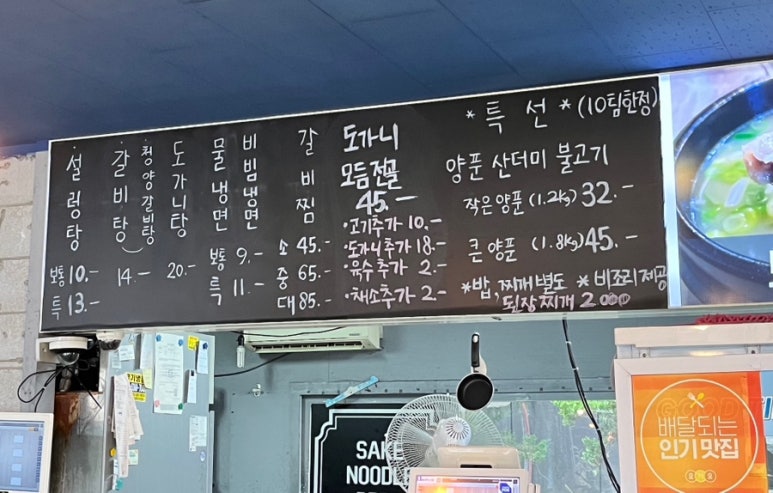 설렁탕
보통 10.-
특 13.-
갈비탕
청양갈비탕
14.-
도가니탕
20.-
물냉면
비빔냉면
보통 9.-
특 11.-
갈비찜
소 45.-
중 65.-
대 85.-
도가니
모듬전골
45.-
·고기추가 10.-
·도가니추가 18.-
·육수추가 2.-
·채소추가 2.-
*특선* (10팀한정)
양푼 산더미 불고기
작은양푼 (1.2kg) 32.-
큰 양푼 (1.8kg) 45.-
*밥, 찌개별도 *비조리제공
된장찌개 2000
SAKE
NOODLE
GOOD
배달되는
인기 맛집